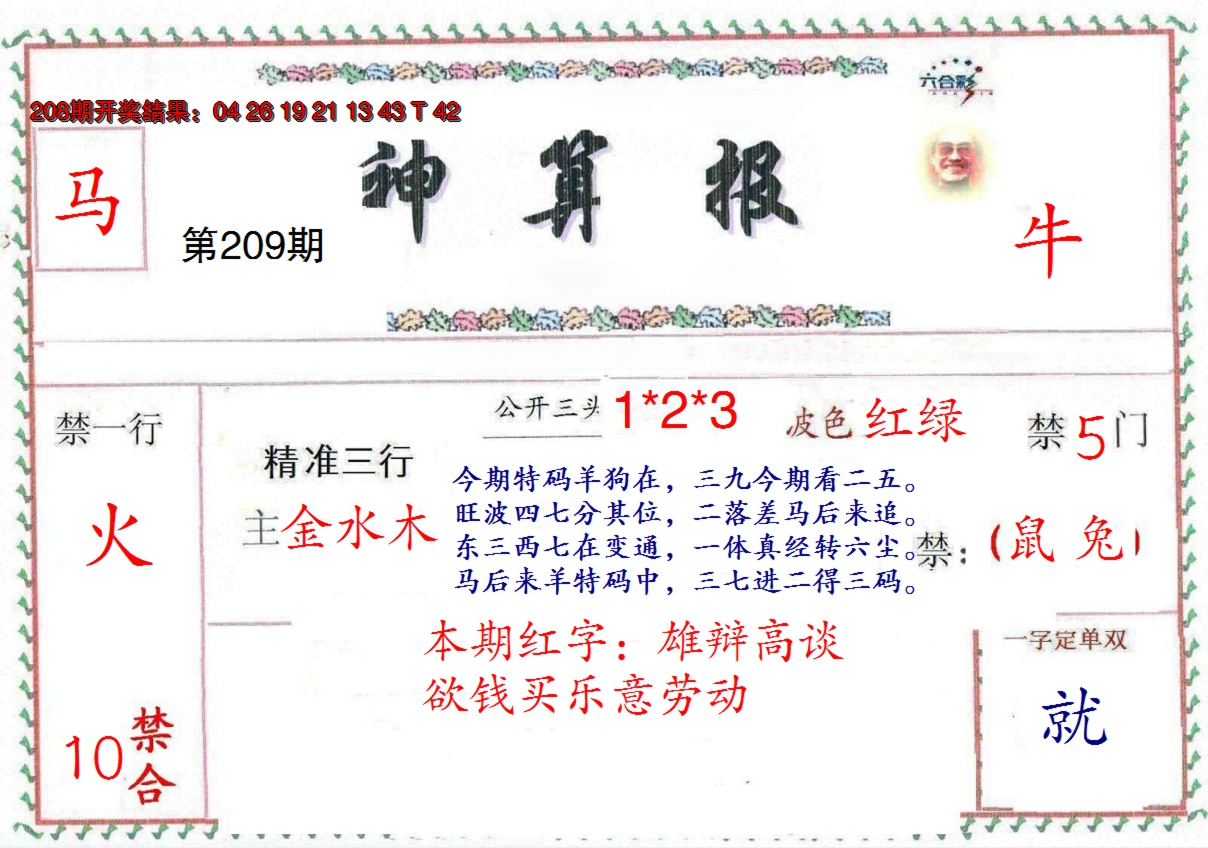 六合彩
208期开奖结果：04 26 19 21 13 43 T 42
神算报
马
第209期
牛
禁一行
火
10禁合
精准三行
主金水木
公开三头 1*2*3
波色 红绿
禁5门
今期特码羊狗在，三九今期看二五。
旺波四七分其位，二落差马后来追。
东三西七在变通，一体真经转六尘。
马后来羊特码中，三七进二得三码。
禁：（鼠 兔）
本期红字：雄辩高谈
欲钱买乐意劳动
一字定单双
就